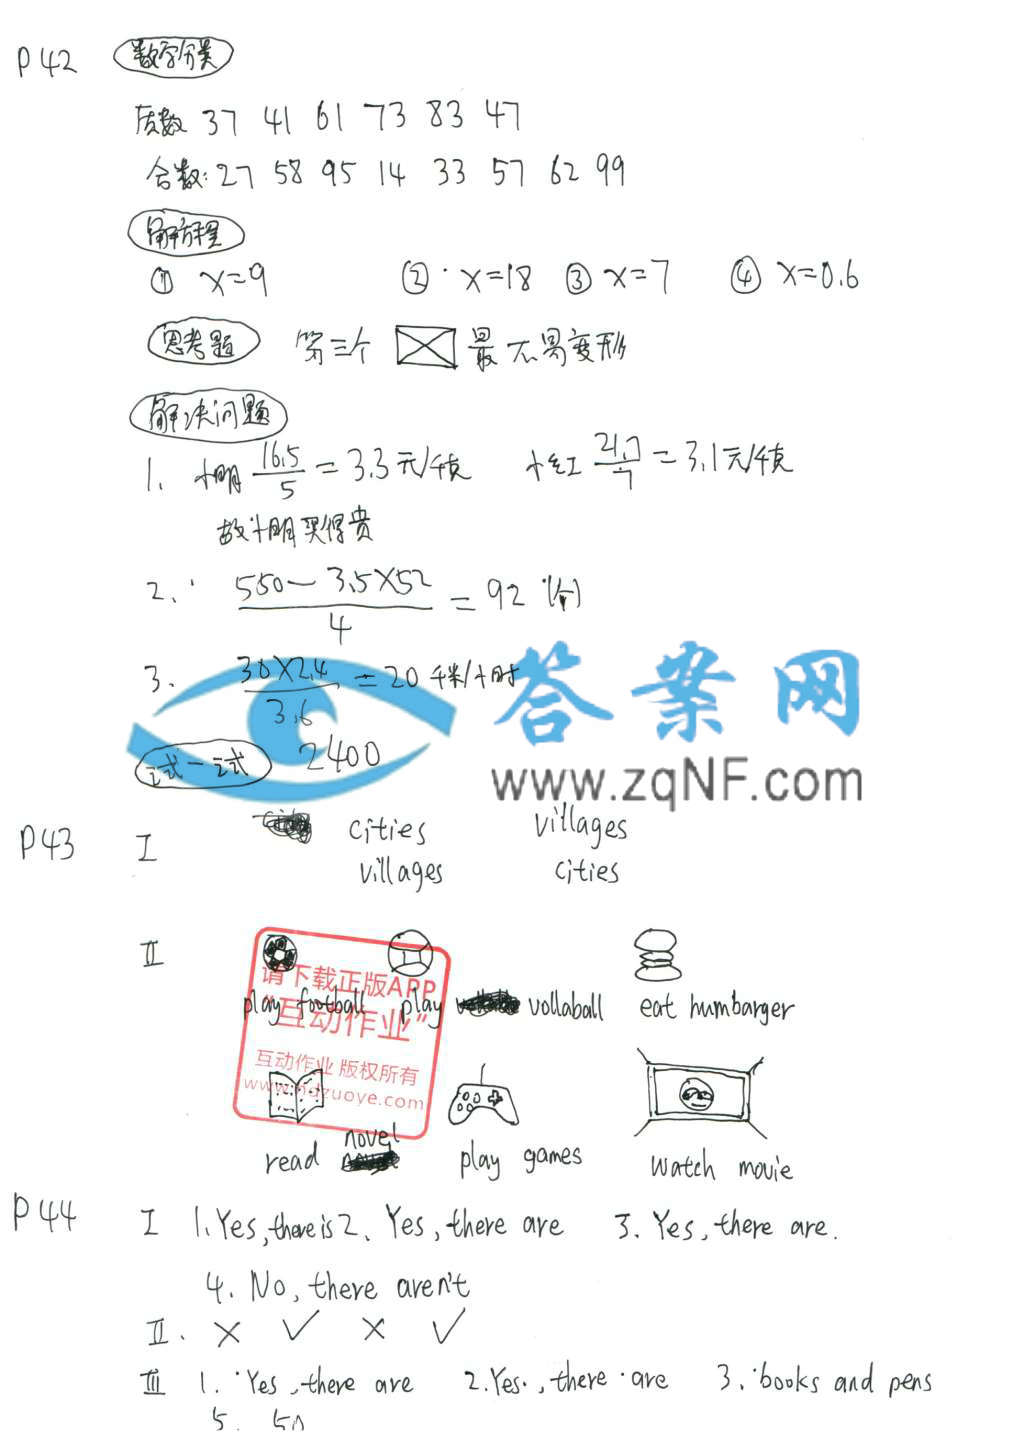 P42 数字分类
质数 37 41 61 73 83 47
合数: 27 58 95 14 33 57 62 99
解方程
① x=9 ② x=18 ③ x=7 ④ x=0.6
思考题 第三个 最不易变形
解决问题
1. 小明 16.5/5 = 3.3元/千克 小红 21.7/7 = 3.1元/千克
故小明买得贵
2. (550-3.5×52)/4 = 92 (个)
3. 30×2.4/3.6 = 20 千米/小时
试一试 2400
答案网
www.zqNF.com
P43 I cities villages
villages cities
II
请下载正版APP
play football play vollaball eat humbarger
"互动作业"
互动作业 版权所有
www.hdzuoye.com
novel
read play games watch movie
P44 I 1. Yes, there is 2. Yes, there are 3. Yes, there are.
4. No, there aren't
II. × ✓ × ✓
III 1. Yes, there are 2. Yes, there are 3. books and pens
5. 50